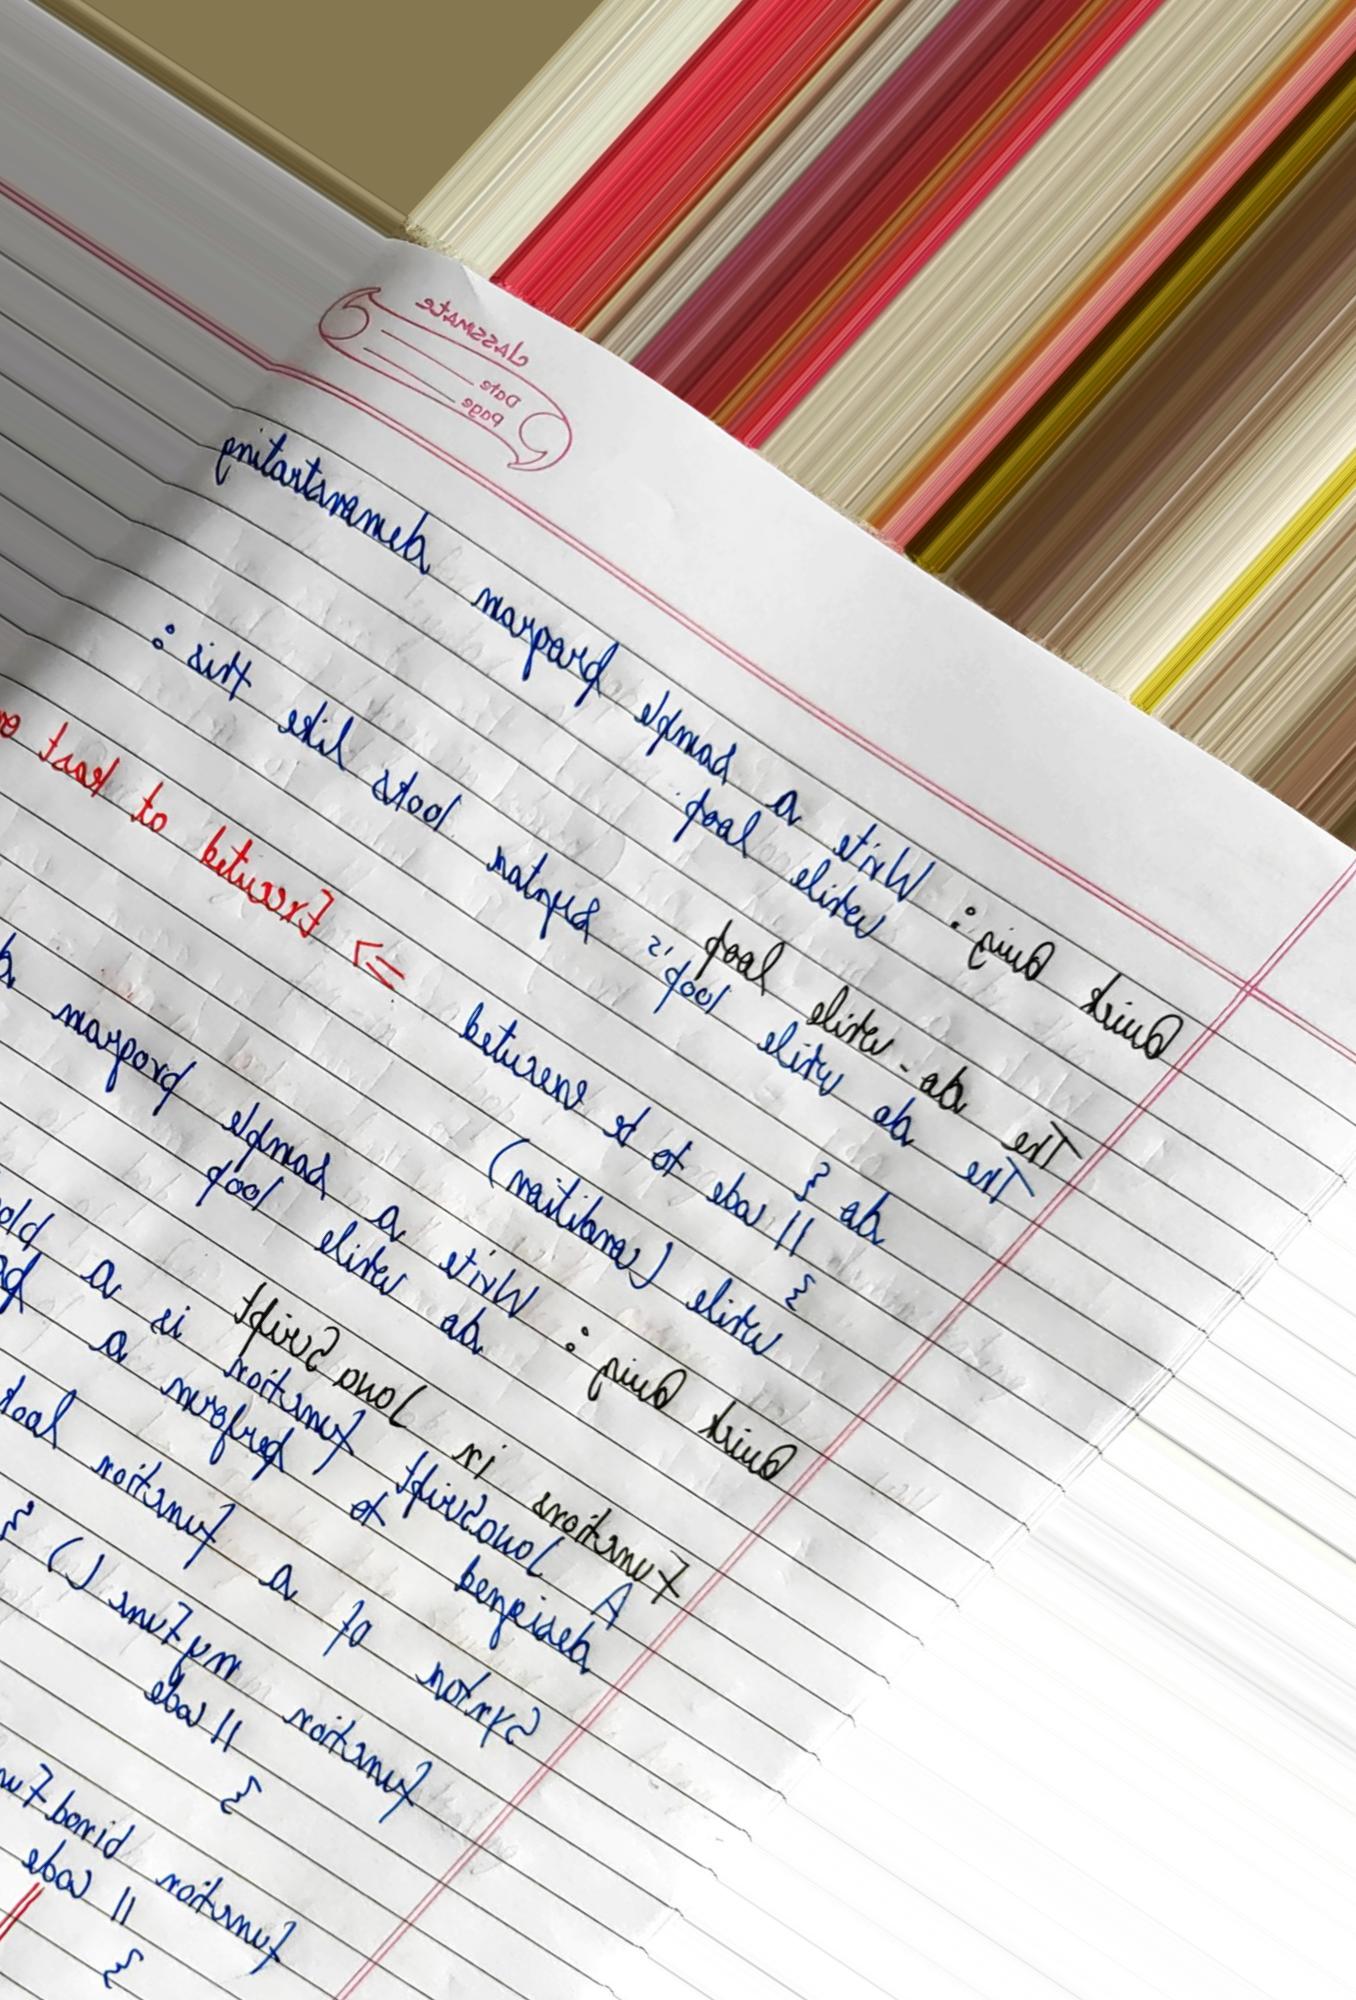 classmate
Date
Page
Quick Quiz : Write a sample program demonstrating
while loop
The do-while loop
The do while loop's syntax looks like this :
do {
// code to be executed => Executed at least
}
while (condition)
Quick Quiz : Write a sample program
do while loop
Functions in JavaScript
A JavaScript function is a
designed to perform a
Syntax of a function
function myFunc () {
// code
}
function
// code
}